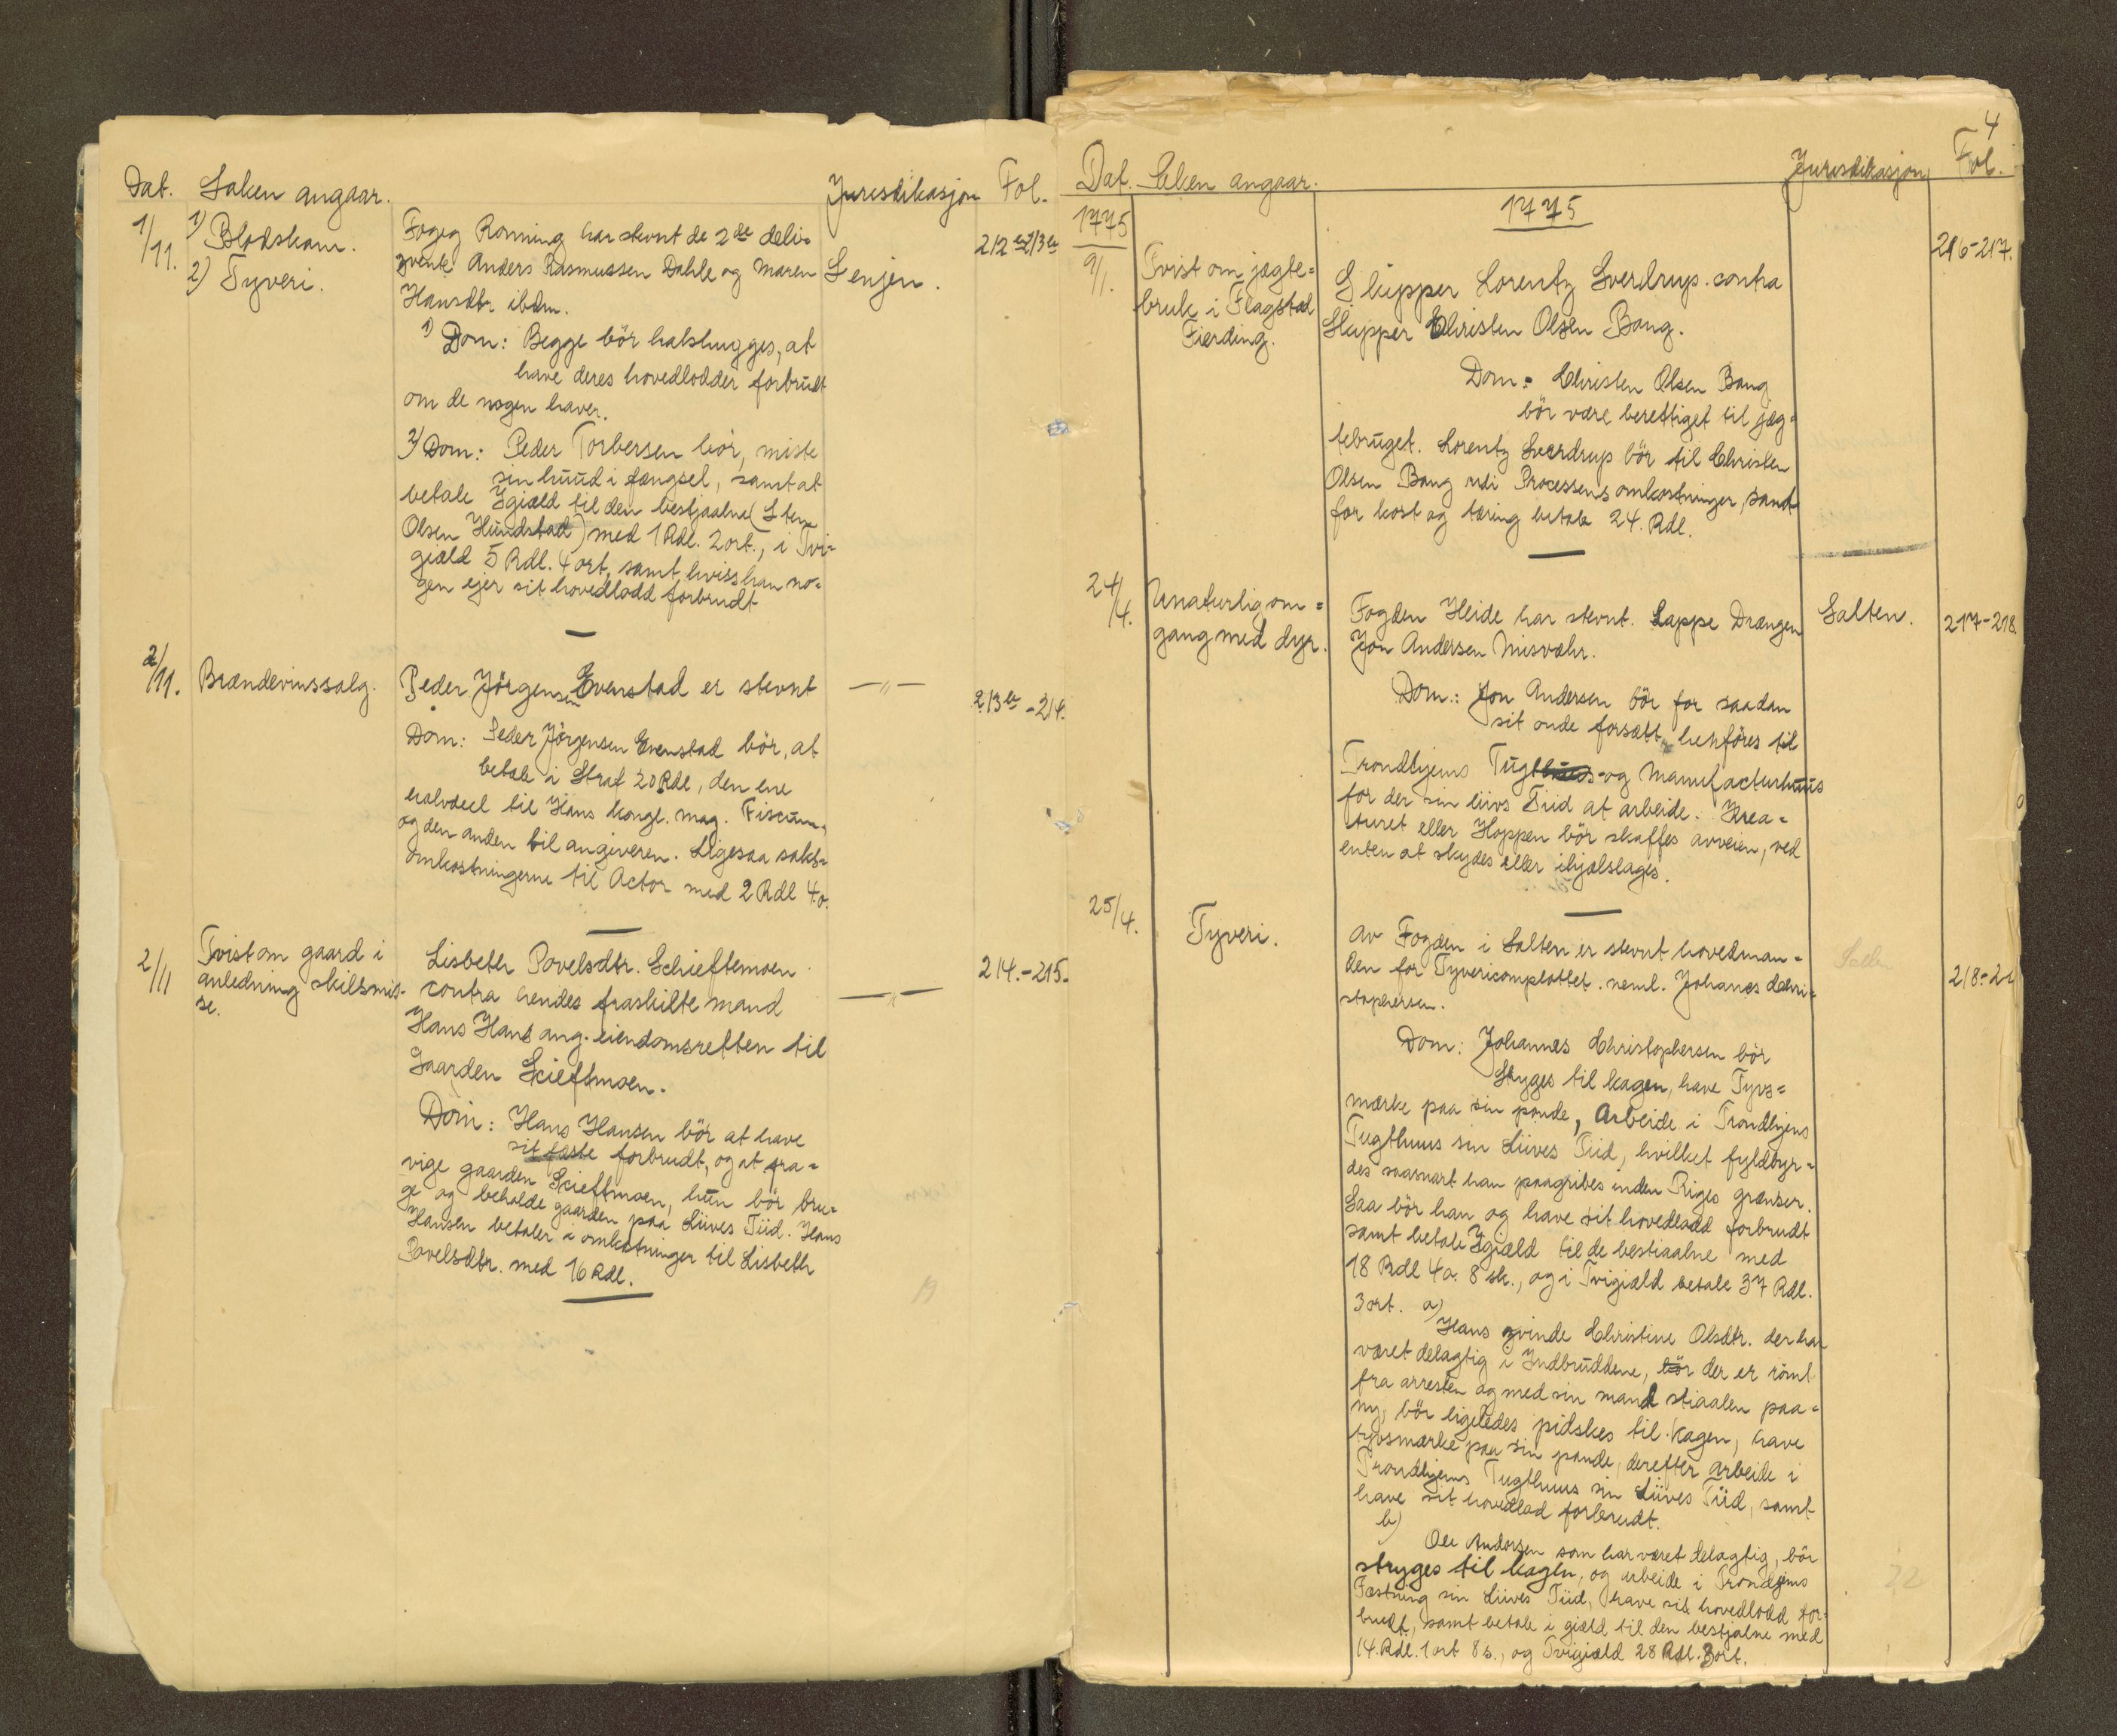 Dat. Saken angaar. Jurisdikasjon Fol.
1/11. 1) Blodskam.
2) Tyveri.
Foged Ronning har stevnt de 2de delin-
qvente Anders Rasmussen Dahle og Maren
Hansdtr. ibdm.
Senjen.
212-213
1) Dom: Begge bör halshugges, at
have deres hovedlodder forbrudt
om de nogen haver.
2) Dom: Peder Torbersen bör, miste
sin huud i fængsel, samt at
betale Igiæld til den bestjaalne (Sten
Olsen Hundstad) med 1 Rdl. 2 ort., i Tvi-
giæld 5 Rdl. 4 ort, samt hviss han no-
gen ejer sit hovedlodd forbrudt
2/11. Brændevinssalg.
Peder Jörgensen Evenstad er stevnt
—〃—
213 - 214.
Dom: Peder Jörgensen Evenstad bör, at
betale i Straf 20 Rdl, den ene
halvdeel til Hans kongl. mag. Fiscum,
og den anden til angiveren. Ligesaa saks-
omkostningerne til Actor med 2 Rdl 4 o.
2/11 Tvist om gaard i
anledning skilsmis-
se.
Lisbeth Povelsdtr. Schieftemoen
contra hendes fraskilte mand
Hans Hans ang. eiendomsretten til
Gaarden Scieftmoen.
—〃—
214.-215.
Dom: Hans Hansen bör at have
sit fæste forbrudt, og at fra-
vige gaarden Scieftmoen, hun bör bru-
ge og beholde gaarden paa Liives Tiid. Hans
Hansen betaler i omkostninger til Lisbeth
Povelsdtr. med 16 Rdl.
4
Dat. Saken angaar. Jurisdikasjon Fol.
1775
1775
9/1. Tvist om jægte-
bruk i Flagstad
Fierding.
Skipper Lorentz Sverdrup contra
Skipper Christen Olsen Bang.
216-217.
Dom: Christen Olsen Bang
bör være berettiget til jæg-
tebruget. Lorentz Sverdrup bör til Christen
Olsen Bang udi Processens omkostninger, samt
for kost og tæring betale 24. Rdl.
24/4. Unaturlig om-
gang med dyr.
Fogden Heide har stevnt. Lappe Drængen
Jon Andersen Misvæhr.
Salten.
217-218
Dom: Jon Andersen bör for saadan
sit onde forsætt henföres til
Trondhjems Tugthuus- og Manufacturhuus
for der sin liivs Tiid at arbeide. Krea-
turet eller Hoppen bör skaffes avveien, ved
enten at skydes eller ihjælslages.
25/4. Tyveri.
av Fogden i Salten er stevnt hovedman-
den for Tyvericomplottet. neml. Johanes Chri-
stophersen.
218-2
Dom: Johannes Christophersen bör
Stryges til kagen, have Tyvs-
mærke paa sin pande, Arbeide i Trondhjems
Tugthuus sin Liives Tiid, hvilket fyldbyr-
des saasnart han paagribes inden Riges grænser.
Saa bör han og have sit hovedlodd forbrudt
samt betale Igiæld til de bestiaalne med
18 Rdl 4 o. 8 sk., og i Tvigiæld betale 37 Rdl.
3 ort. a)
Hans qvinde Christine Olsdtr. der har
været delagtig i Indbruddene, bör der er römt
fra arresten og med sin mand stiaalen paa-
ny, bör ligeledes pidskes til kagen, have
tyvsmærke paa sin pande, derefter arbeide i
Trondhjems Tugthuus sin Liives Tiid, samt
have sit hovedlod forbrudt.
b)
Ole Andersen som har været delagtig, bör
stryges til kagen, og arbeide i Trondhjems
Fæstning sin Liives Tiid, have sit hovedlodd for-
brudt, samt betale i giæld til den bestjalne med
14. Rdl. 1 ort 8 s., og Tvigiæld 28 Rdl. 3 ort.
22